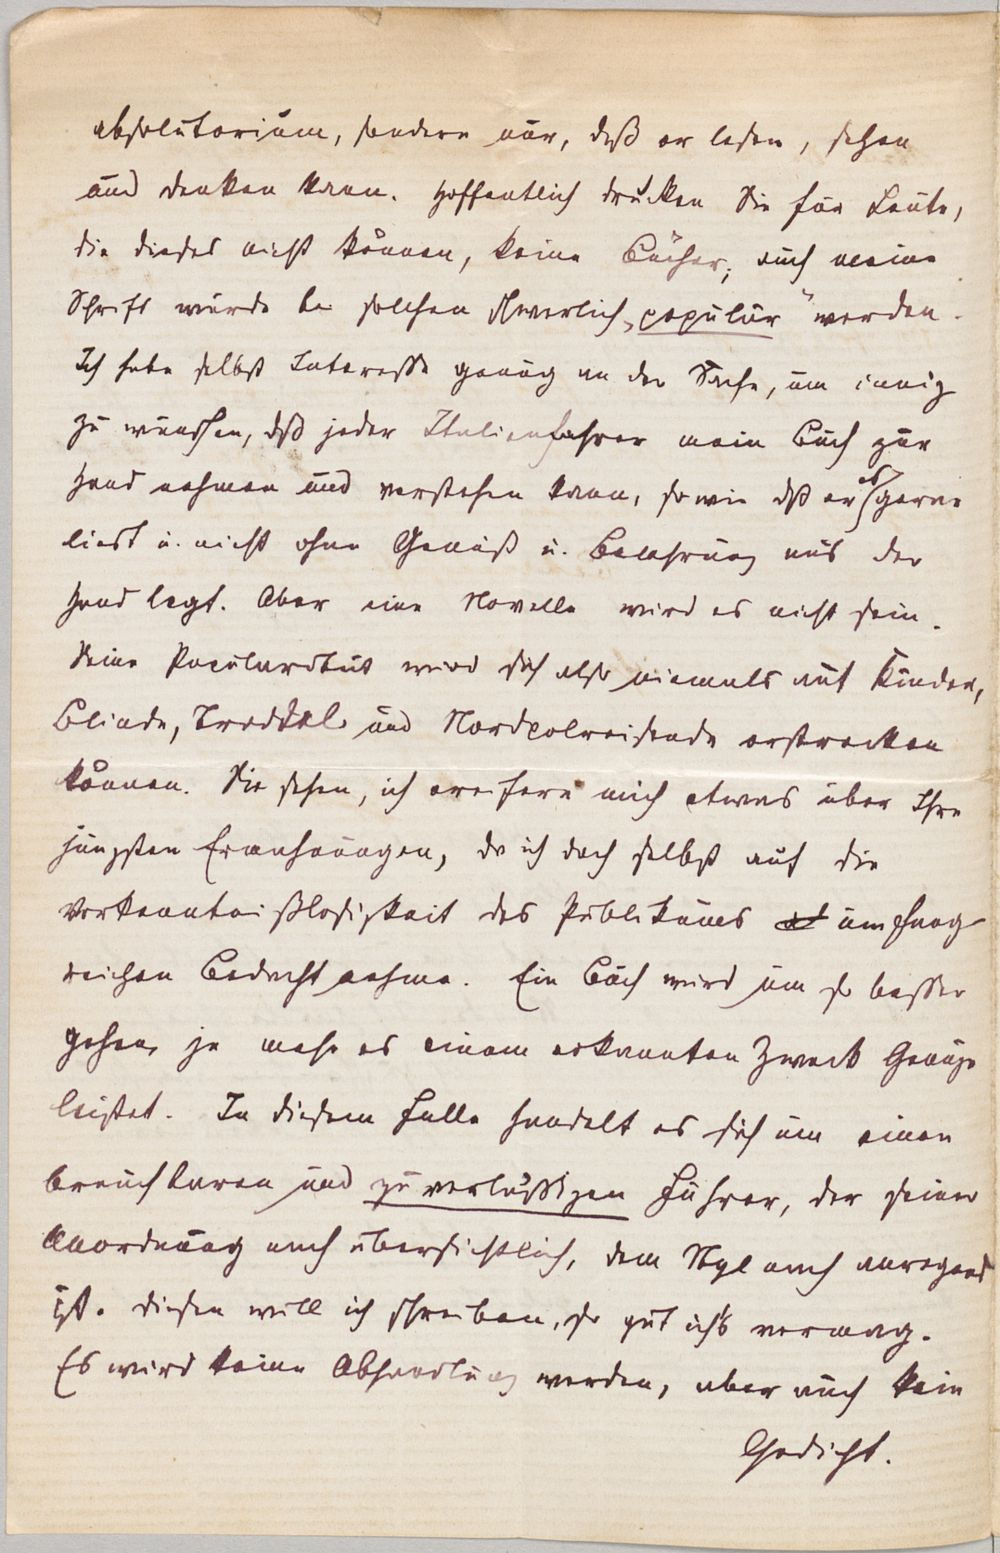 absolutorium, sondern nur, daß er lesen, sehen
und denken kann. Hoffentlich drucken Sie für Leute,
die dieses nicht können, keine Bücher; auch meine
Schrift würde bei solchen schwerlich „populär“ werden.
Ich habe selbst Interesse genug an der Sache, um innig
zu wünschen, daß jeder Italienfahrer mein Buch zur
Hand nehmen und verstehen kann, sowie daß er es gerne
liest u. nicht ohne Genuß u. Belehrung aus der
Hand legt. Aber eine Novelle wird es nicht sein.
Seine Popularität wird sich also niemals auf Kinder,
Blinde, Troddel und Nordpolreisende erstrecken
können. Sie sehen, ich ereifere mich etwas über Ihre
jüngsten Ermahnungen, da ich doch selbst auf die
Vorkenntnißlosigkeit des Publikums umfang-
reichen Bedacht nehme. Ein Buch wird um so besser
gehen, je mehr es einem erkannten Zweck Genüge
leistet. In diesem Falle handelt es sich um einen
brauchbaren und zuverlässigen Führer, der seiner
Anordnung nach übersichtlich, dem Styl nach anregend
ist. Diesen will ich schreiben, so gut ich's vermag.
Es wird keine Abhandlung werden, aber auch kein
Gedicht.